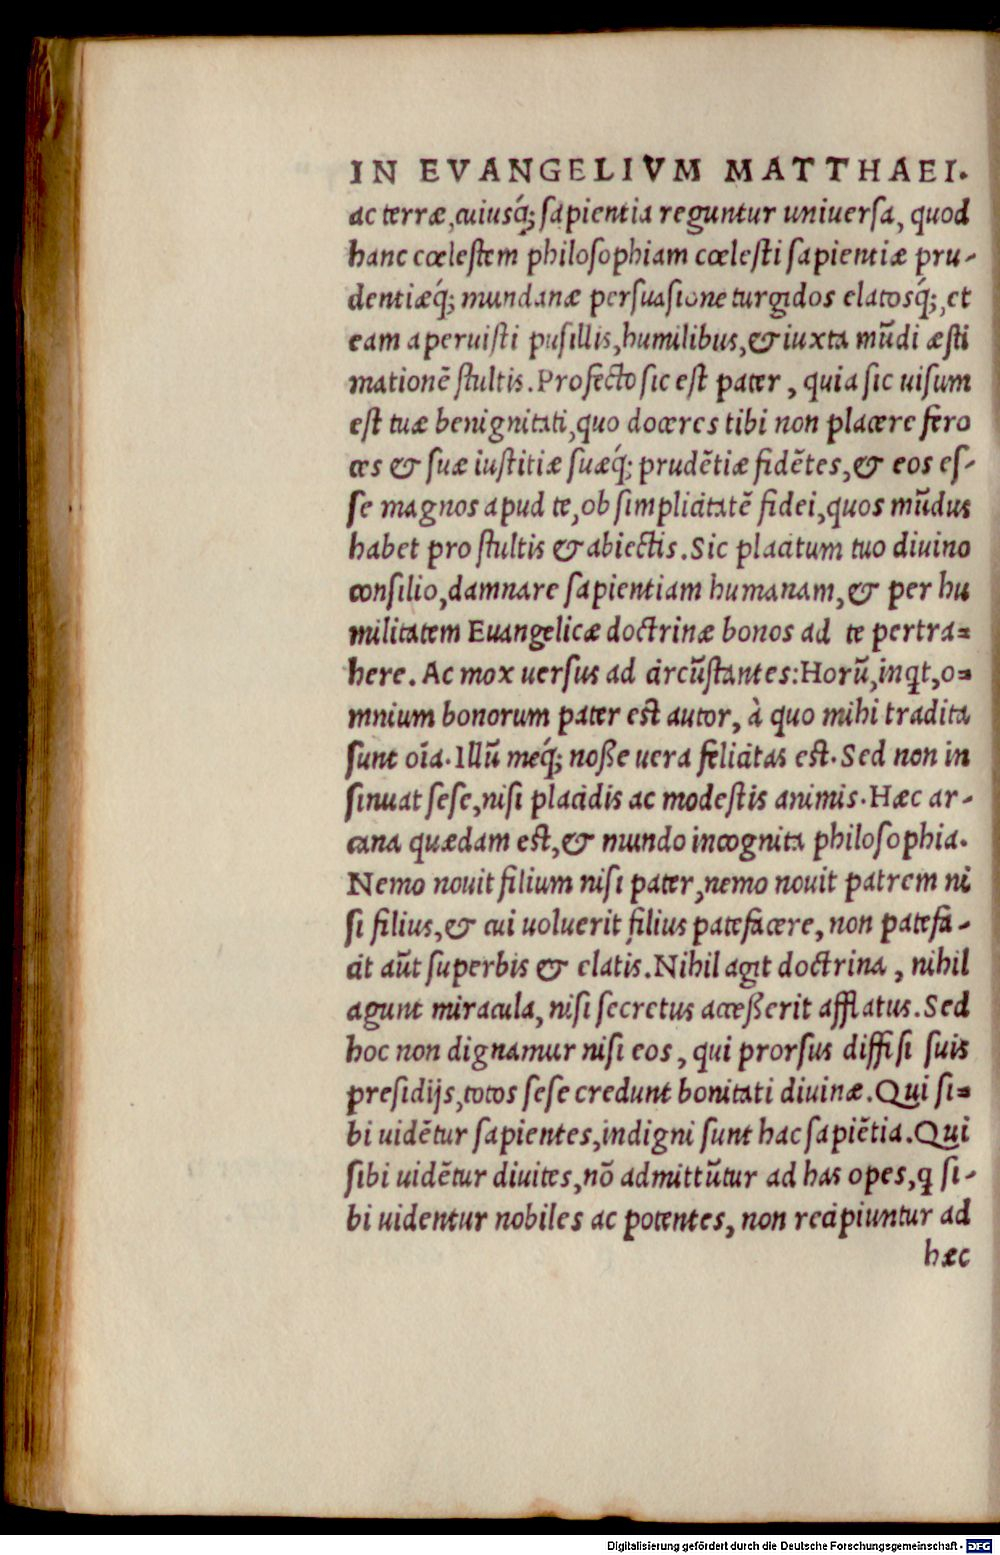 IN EVANGELIVM MATTHAEI.
ac terræ, cuiusq́; sapientia reguntur uniuersa, quod
hanc cœlestem philosophiam cœlesti sapientiæ pru-
dentiæq́; mundanæ persuasione turgidos elatosq́;, et
eam aperuisti pusillis, humilibus, & iuxta mũdi æsti
mationẽ stultis. Profecto sic est pater, quia sic uisum
est tuæ benignitati, quo doceres tibi non placere fero
ces & suæ iustitiæ suæq́; prudẽtiæ fidẽtes, & eos es-
se magnos apud te, ob simplicitatẽ fidei, quos mũdus
habet pro stultis & abiectis. Sic placitum tuo diuino
consilio, damnare sapientiam humanam, & per hu
militatem Euangelicæ doctrinæ bonos ad te pertra=
here. Ac mox uersus ad circũstantes: Horũ, inqt, o=
mnium bonorum pater est autor, à quo mihi tradita
sunt oĩa. Illũ meq́; noße uera felicitas est. Sed non in
sinuat sese, nisi placidis ac modestis animis. Hæc ar-
cana quædam est, & mundo incognita philosophia.
Nemo nouit filium nisi pater, nemo nouit patrem ni
si filius, & cui uoluerit filius patefacere, non patefa-
cit aũt superbis & elatis. Nihil agit doctrina, nihil
agunt miracula, nisi secretus acceßerit afflatus. Sed
hoc non dignamur nisi eos, qui prorsus diffisi suis
presidijs, totos sese credunt bonitati diuinæ. Qui si=
bi uidẽtur sapientes, indigni sunt hac sapiẽtia. Qui
sibi uidẽtur diuites, nõ admittũtur ad has opes, q si-
bi uidentur nobiles ac potentes, non recipiuntur ad
hæc
Digitalisierung gefördert durch die Deutsche Forschungsgemeinschaft - DFG